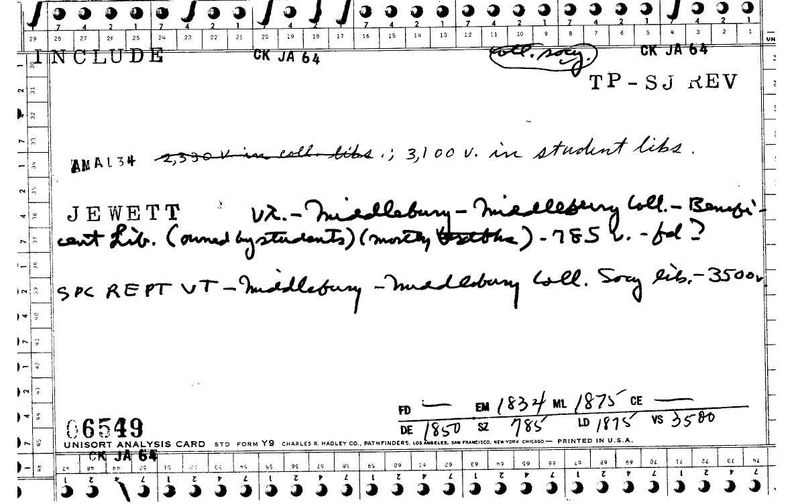 INCLUDE CK JA 64 coll. socy. CK JA 64
TP-SJ REV
ANAL34 2,330 v. in coll. libs.; 3,100 v. in student libs.
JEWETT Vt. - Middlebury - Middlebury Coll. - Benefi-
cent Lib. (owned by students) (mostly textbks) - 785 v. - fd?
SPC REPT VT - Middlebury - Middlebury Coll. Socy lib. - 3500v
FD — EM 1834 ML 1875 CE —
06549 DE 1850 SZ 785 LD 1875 VS 3500
UNISORT ANALYSIS CARD STD FORM Y9 CHARLES R. HADLEY CO., PATHFINDERS, LOS ANGELES, SAN FRANCISCO, NEW YORK CHICAGO — PRINTED IN U.S.A.
CK JA 64